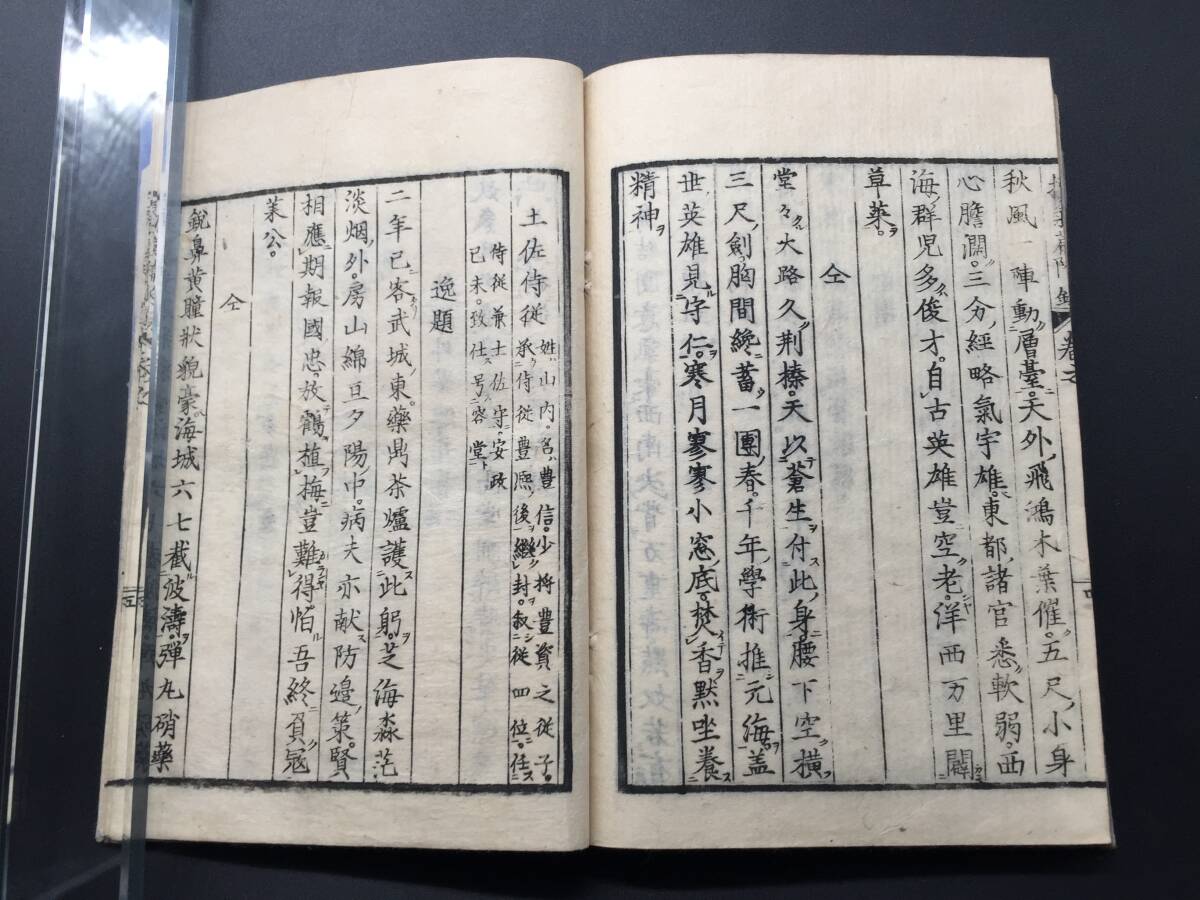 秋風一陣動層臺。天外飛鴻木葉催。五尺小身
心膽濶。三分經略氣宇雄。東都諸官悉軟弱。西
海群児多俊才。自古英雄豈空老。洋西万里闢
草萊。
仝
堂々大路久荆榛。天以蒼生付此身。腰下空横
三尺劍。胸間纔蓄一團春。千年學術推元海。蓋
世英雄見守仁。寒月寥寥小窓底。焚香黙坐養
精神。
土佐侍従 姓山内。名豊信。少将豊資之従子。
承侍従豊熈後継封。叙従四位。任
侍従兼土佐守。安政
己未。致仕号容堂。
逸題
二年已客武城東。藥鼎茶爐護此躬。芝海淼茫
淡烟外。房山綿亘夕陽中。病夫亦献防邉策。賢
相應期報國忠。放鶴植梅豈難得。怕吾終負冦
莱公。
仝
鋭鼻黄瞳状貌豪。海城六七截波濤。彈丸硝藥